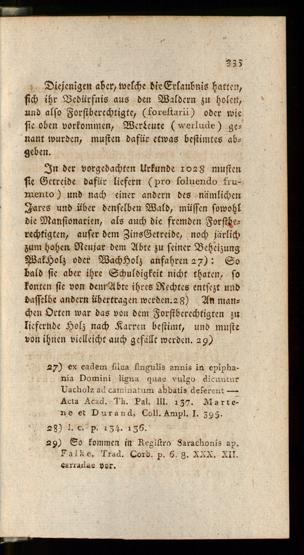 335
Diejenigen aber, welche die Erlaubnis hatten,
sich ihr Bedürfnis aus den Waldern zu holen,
und also Forstberechtigte, (forestarii) oder wie
sie oben vorkommen, Werleute (werlude) ge-
nant wurden, musten dafür etwas bestimtes ab-
geben.
In der vorgedachten Urkunde 1028 musten
sie Getreide dafür liefern (pro soluendo fru-
mento) und nach einer andern des nämlichen
Jares und über denselben Wald, müssen sowohl
die Mansionarien, als auch die fremden Forstbe-
rechtigten, auser dem ZinsGetreide, noch järlich
zum hohen Neujar dem Abte zu seiner Beheizung
WakHolz oder WachHolz anfahren 27): So
bald sie aber ihre Schuldigkeit nicht thaten, so
konten sie von dem Abte ihres Rechtes entsezt und
dasselbe andern übertragen werden. 28) An man-
chen Orten war das von dem Forstberechtigten zu
liefernde Holz nach Karren bestimt, und muste
von ihnen vielleicht auch gefällt werden. 29)
27) ex eadem silua singulis annis in epipha-
nia Domini ligna quae vulgo dicuntur
Uacholz ad caminatum abbatis deferent —
Acta Acad. Th. Pal. III. 137. Marte-
ne et Durand, Coll. Ampl. I. 395.
28) l. c. p. 134. 136.
29) So kommen in Registro Sarachonis ap.
Falke, Trad. Corb. p. 6. §. XXX. XII.
carradae vor.